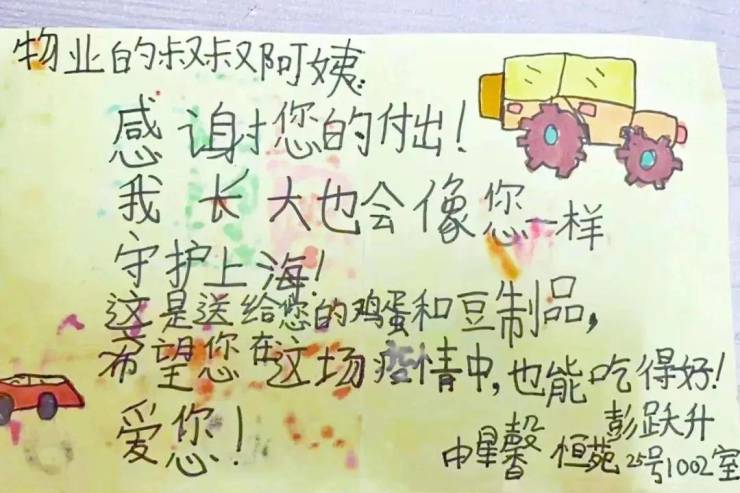 物业的叔叔阿姨:
感谢您的付出!
我长大也会像您一样
守护上海!
这是送给您的鸡蛋和豆制品,
希望您在这场疫情中,也能吃得好!
爱您!
彭跃升
中星馨恒苑25号1002室